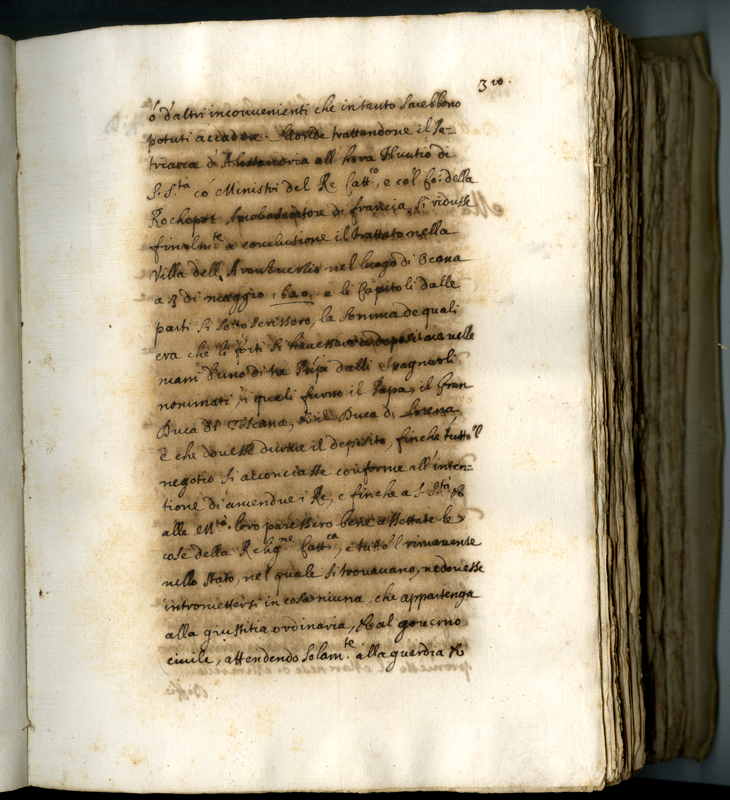 310.
ò d'altri inconvenienti che in tanto sarebbono
potuti accadere. Laonde trattandone il Pa-
triarca d'Alessandria all'hora Nuntio di
S. S.ta có Ministri del Re Catt.co, e co'l Co: della
Rochepot Ambasciatore di francia, si ridusse
finalm.te a conclusione il trattato nella
Villa dell'Aranbuerlio nel luogo di Ocana
a 3 di maggio 1620. e li Capitoli dalle
parti si sotto scrissero, la somma de quali
era che li forti si havessero à depositare nelle
mani d'uno di tre Prípi dalli Spagnuoli
nominati, i quali furno il Papa, il Gran
Duca di Toscana, & il Duca di Lorena,
e che dovesse durare il deposito, finche tutto 'l
negotio si acconciasse conforme all'inten-
tione di amendue i Re, e finche a S. S.tà &
alle M.tà loro paressero bene assettate le
cose della Relig.ne Catt.ca, e tutto 'l rimanente
nello stato, nel quale si trovavano, ne dovesse
intromettersi in cosa niuna, che appartenga
alla giustitia ordinaria, & al governo
civile, attendendo solam.te alla guardia &